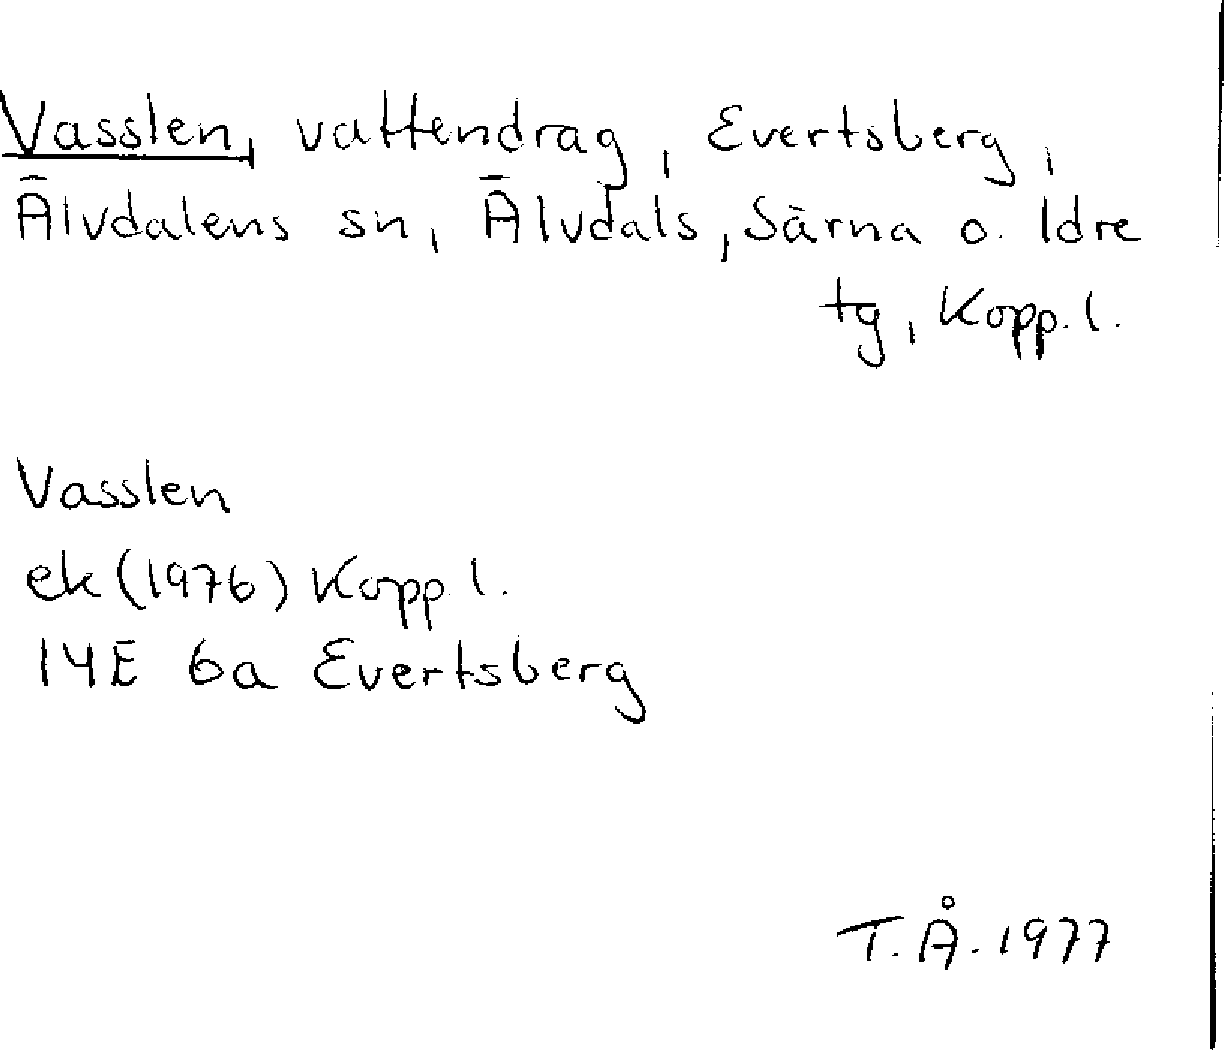 Vasslen, vattendrag, Evertsberg,
Älvdalens sn, Älvdals, Särna o. Idre
tg, Kopp. l.
Vasslen
ek (1976) Kopp l.
14E 6a Evertsberg
T. Å. 1977